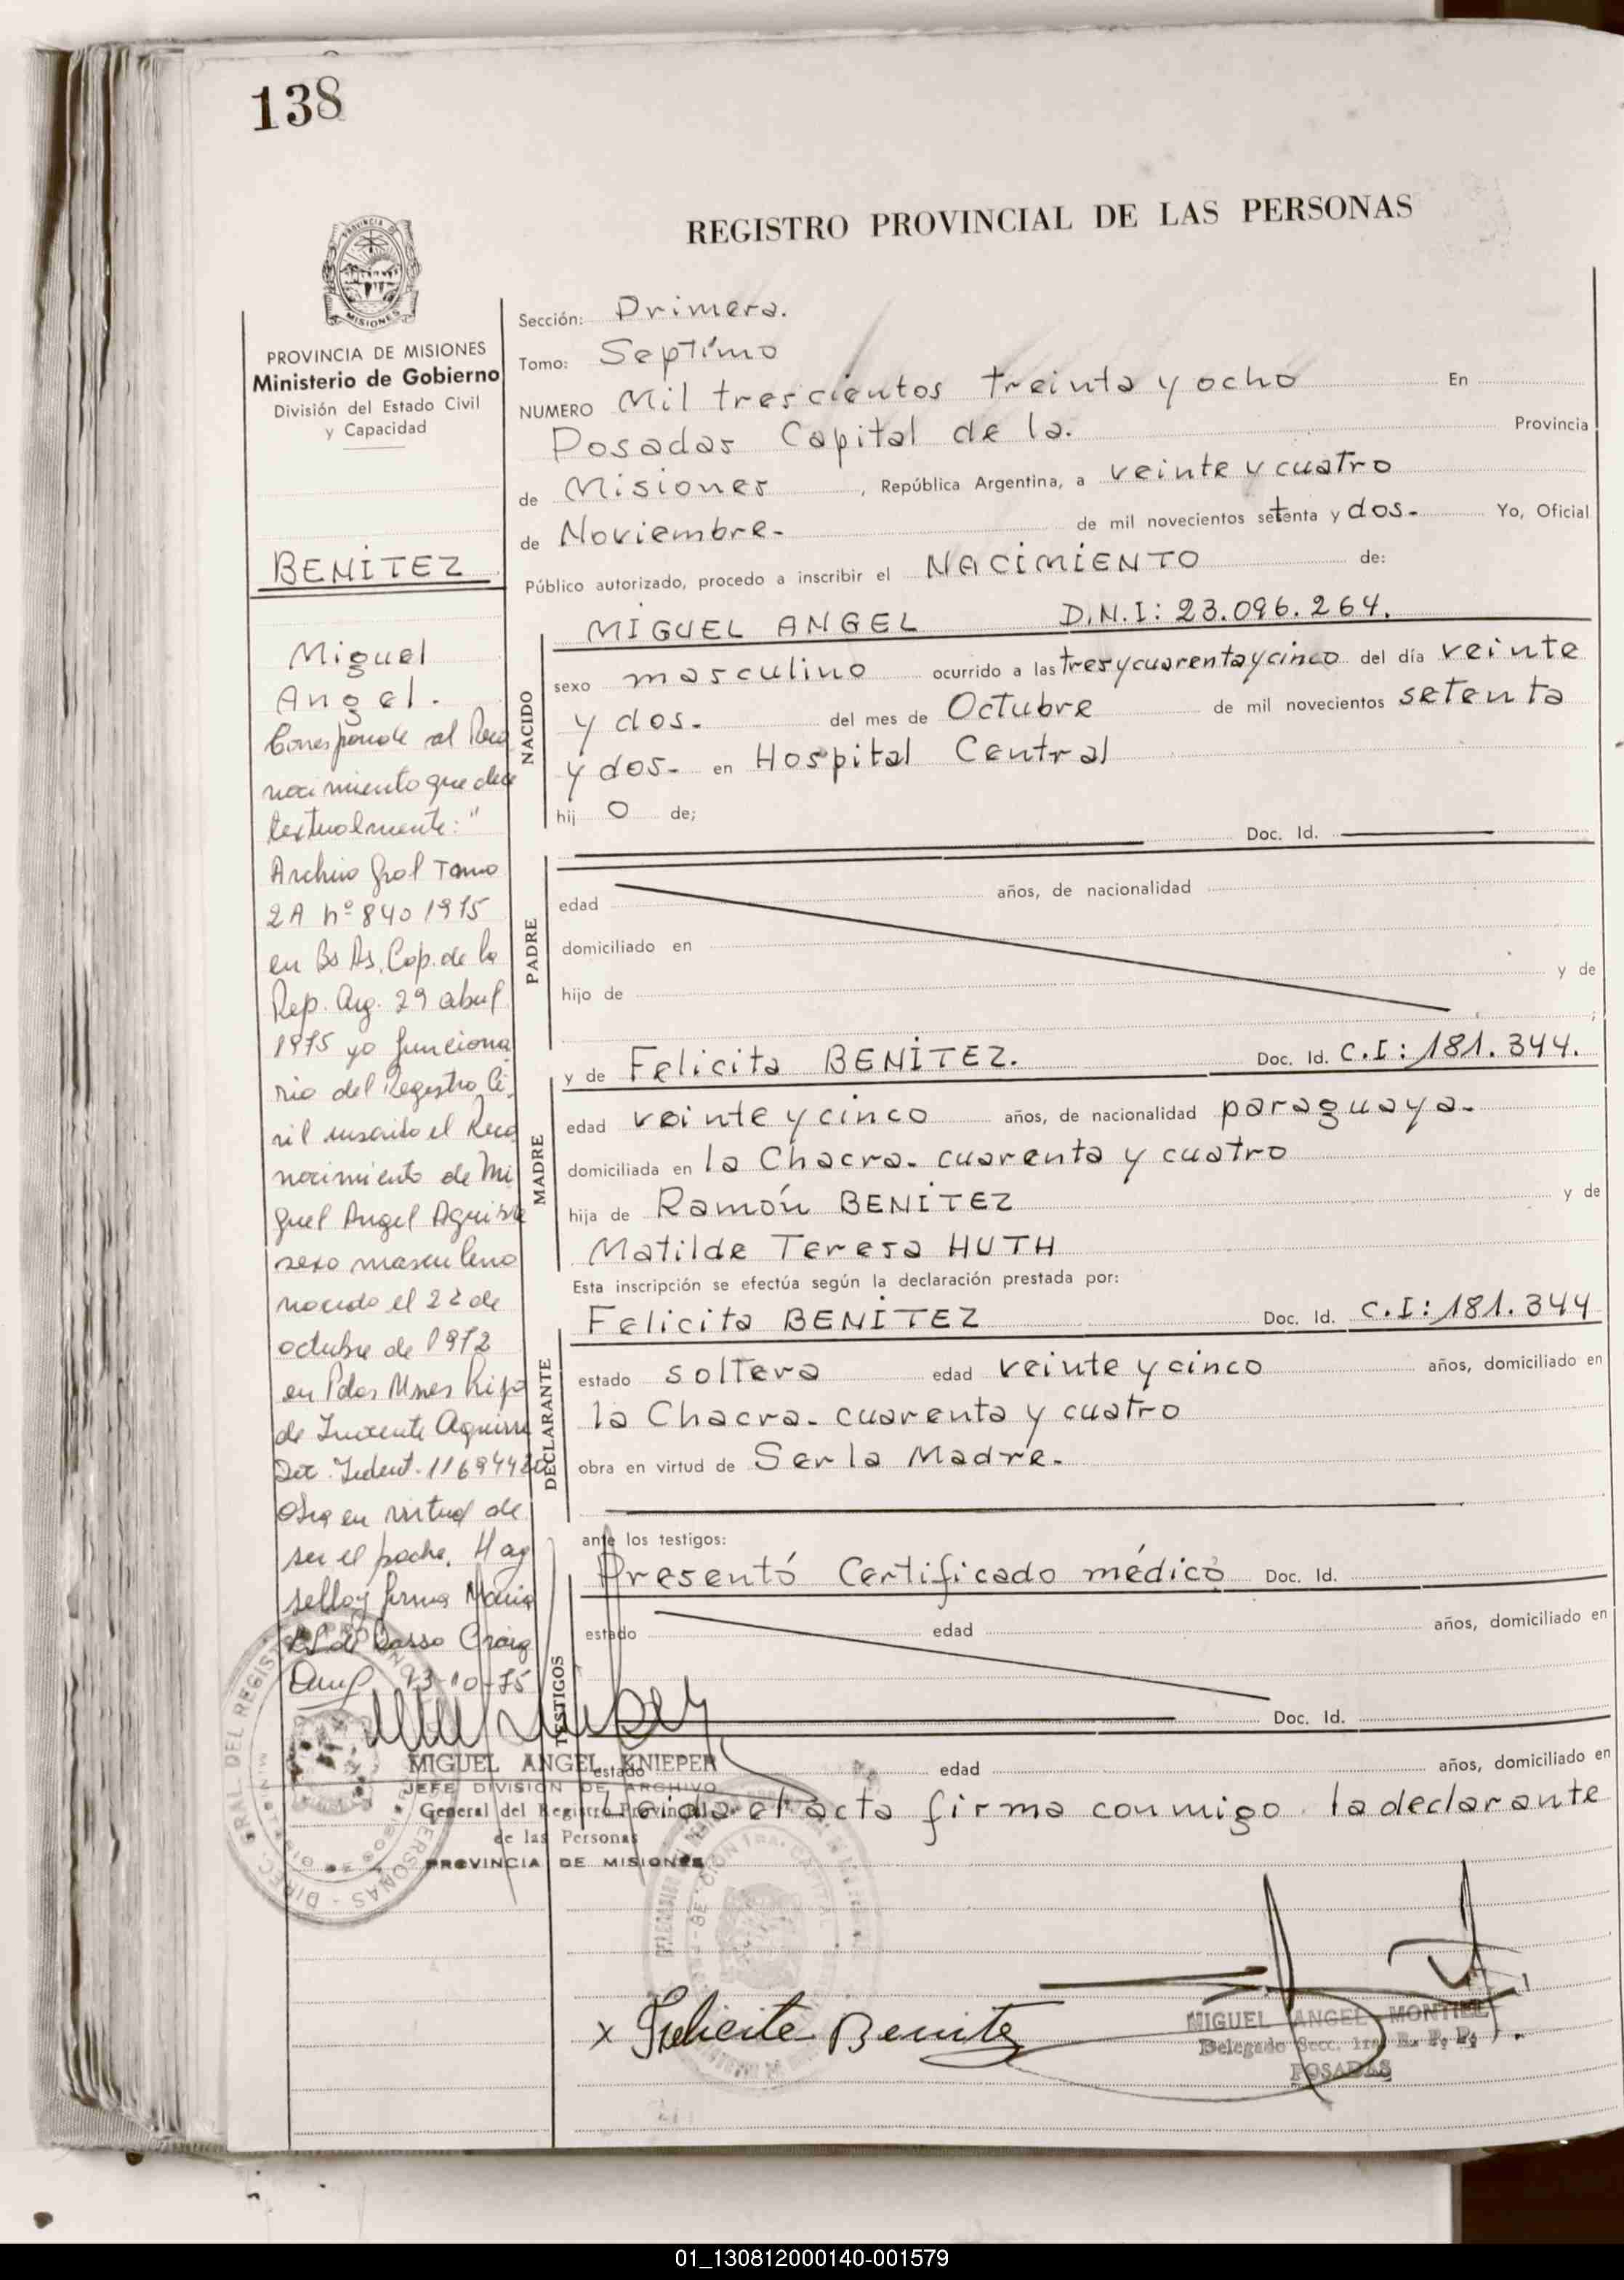 138
REGISTRO PROVINCIAL DE LAS PERSONAS
PROVINCIA DE MISIONES
Ministerio de Gobierno
División del Estado Civil
y Capacidad
BENÍTEZ
Miguel
Angel.
Corresponde al Reco
nocimiento que dice
textualmente: "
Archivo Gral Tomo
2A nº 840 1975
en Bs As. Cap. de la
Rep. Arg. 29 abril
1975 yo funciona
rio del Registro Ci
vil inscribo el Reco
nocimiento de Mi
guel Angel Aguirre
sexo masculino
nacido el 22 de
octubre de 1972
en Pdas Mnes hijo
de Inocente Aguirre
Doc. Ident. 11694420
Obra en virtud de
ser el padre. Hay
sello y firma María
de Basso
13-10-75
MIGUEL ANGEL KNIEPER
JEFE DIVISION DE ARCHIVO
General del Registro Provincial
de las Personas
PROVINCIA DE MISIONES
Sección: Primera.
Tomo: Septimo
NUMERO Mil trescientos treinta y ocho En
Posadas Capital de la. Provincia
de Misiones, República Argentina, a veinte y cuatro
de Noviembre- de mil novecientos setenta y dos.- Yo, Oficial
Público autorizado, procedo a inscribir el NACIMIENTO de:
MIGUEL ANGEL D.N.I: 23.096.264.
NACIDO
sexo masculino ocurrido a las tres y cuarenta y cinco del día veinte
y dos.- del mes de Octubre de mil novecientos setenta
y dos.- en Hospital Central
hij o de;
Doc. Id.
PADRE
edad años, de nacionalidad
domiciliado en
hijo de y de
;
MADRE
y de Felicita BENÍTEZ. Doc. Id. C.I: 181.344.
edad veinte y cinco años, de nacionalidad paraguaya-
domiciliada en la Chacra- cuarenta y cuatro
hija de Ramón BENÍTEZ y de
Matilde Teresa HUTH
Esta inscripción se efectúa según la declaración prestada por:
DECLARANTE
Felicita BENÍTEZ Doc. Id. C.I: 181.344
estado soltera edad veinte y cinco años, domiciliado en
la Chacra- cuarenta y cuatro
obra en virtud de Ser la Madre.-
ante los testigos:
TESTIGOS
Presentó Certificado médico Doc. Id.
estado edad años, domiciliado en
Doc. Id.
estado edad años, domiciliado en
Leida el acta firma conmigo la declarante
x Felicita Benitez
MIGUEL ANGEL MONTIEL
Delegado Secc. 1ra. R. P. P.
POSADAS
01_130812000140-001579